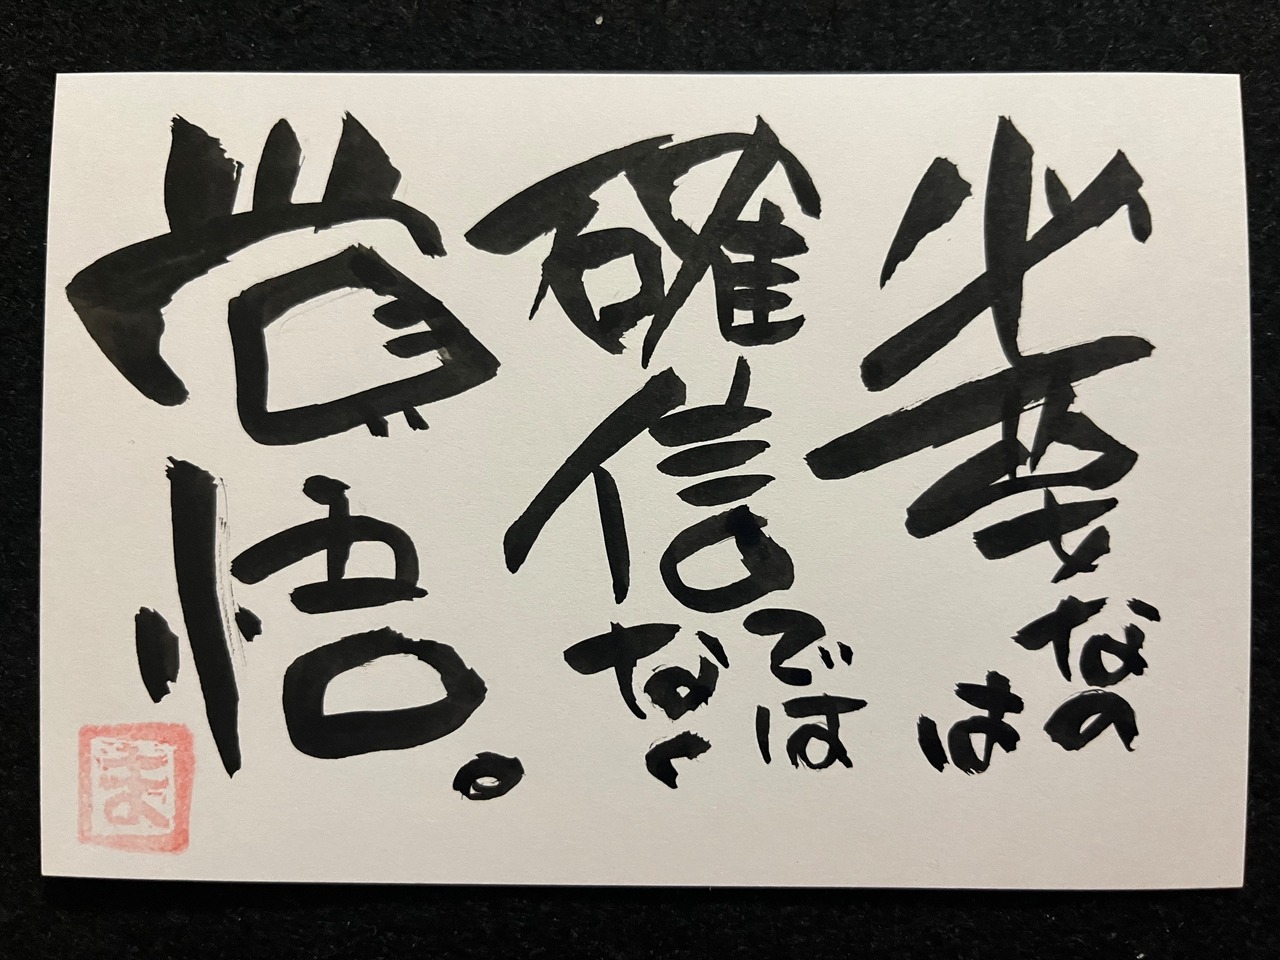 必要なのは
確信ではなく
覚悟。
ま